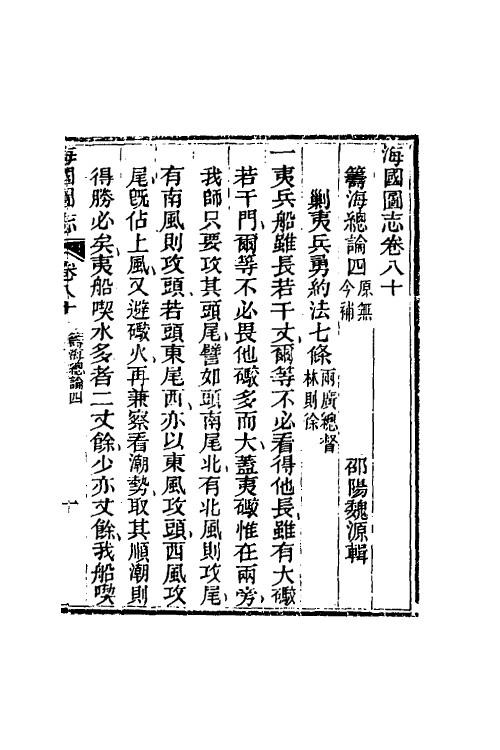 海國圖志卷八十
籌海總論四原無今補
邵陽魏源輯
剿夷兵勇約法七條兩廣總督林則徐
一夷兵船雖長若干丈爾等不必看得他長雖有大礮
若干門爾等不必畏他礮多而大蓋夷礮惟在兩旁
我師只要攻其頭尾譬如頭南尾北有北風則攻尾
有南風則攻頭若頭東尾西亦以東風攻頭西風攻
尾旣佔上風又避礮火再兼察看潮勢取其順潮則
得勝必矣夷船喫水多者二丈餘少亦丈餘我船喫
海國圖志
卷八十
籌海總論四
一